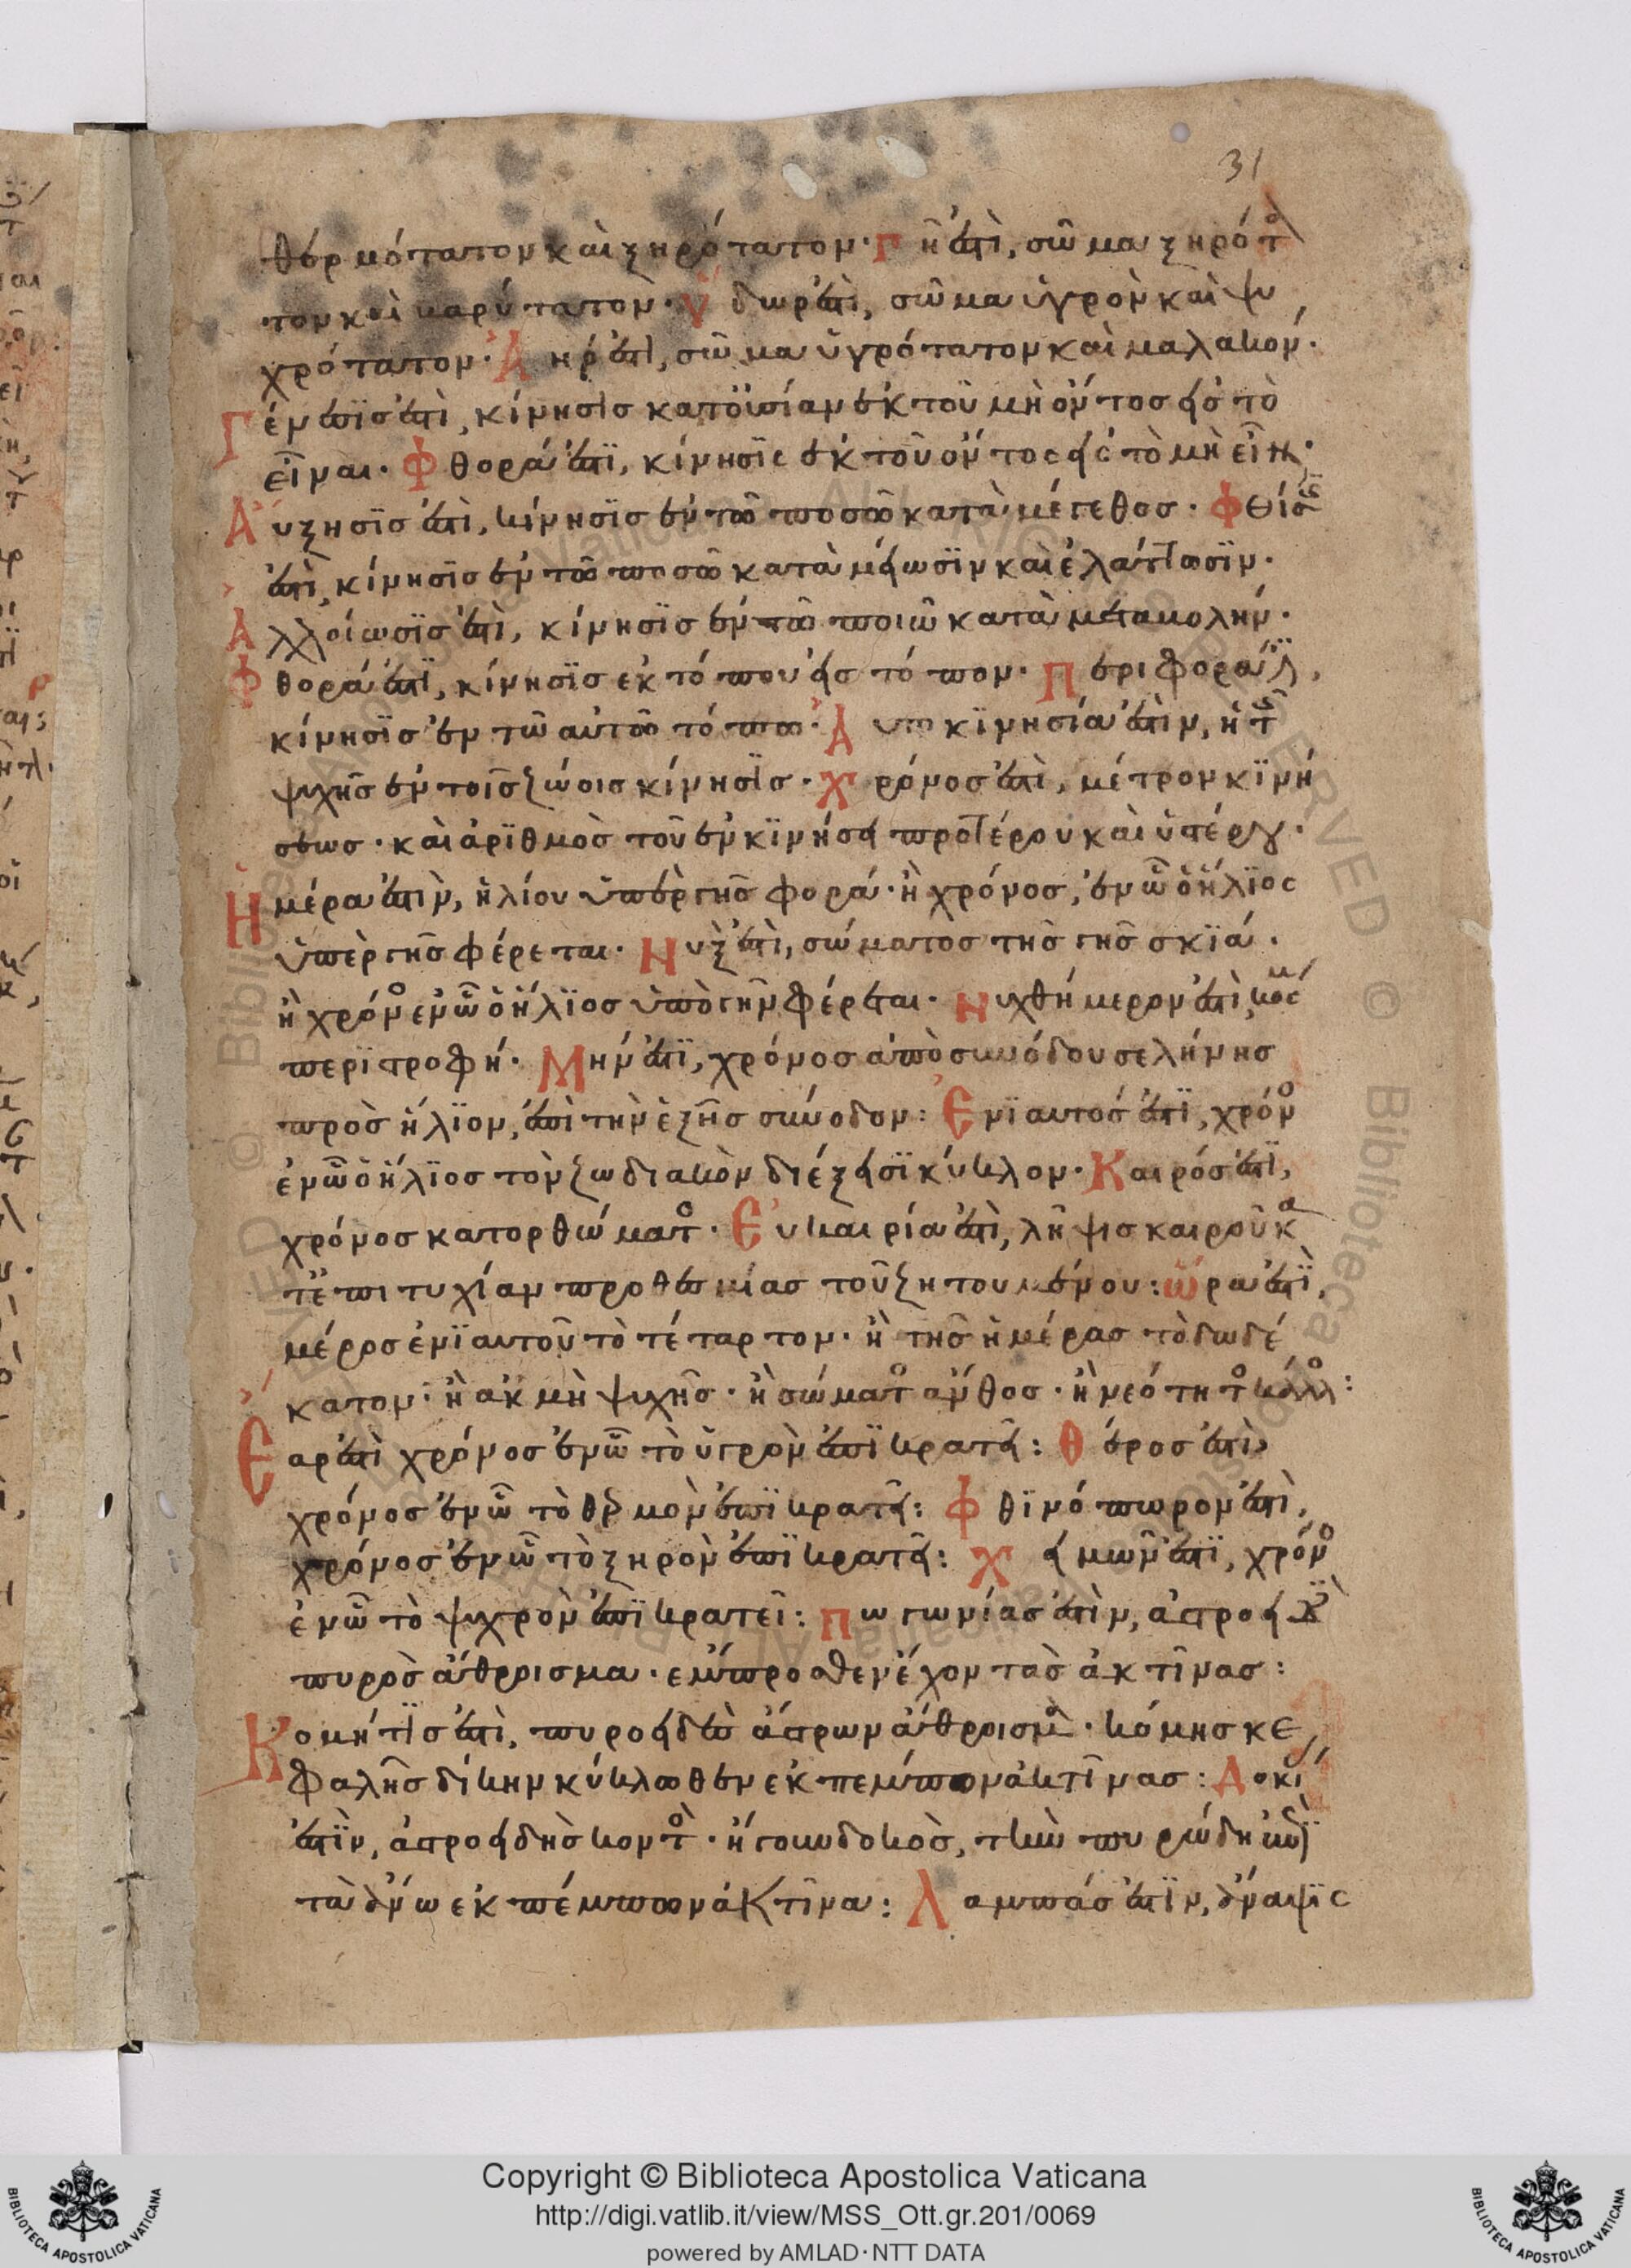 31
θερμότατον καὶ ξηρότατον· Γῆ ἐστὶ, σῶμα ξηρότ
τον καὶ βαρύτατον· Ὕδωρ ἐστὶ, σῶμα ὑγρὸν καὶ ψυ
χρότατον· Ἀήρ ἐστὶ, σῶμα ὑγρότατον καὶ μαλακόν·
Γένεσϊς ἐστὶ, κίνησϊς κατ' οὐσίαν ἐκ τοῦ μὴ ὄντος εἰς τὸ
εἶναι· Φθορά ἐστϊ, κίνησϊς ἐκ τοῦ ὄντος εἰς τὸ μὴ εἶναι·
Αὔξησϊς ἐστὶ, κίνησϊς ἐν τῶ ποσῶ κατὰ μέγεθος· Φθίσϊς
ἐστὶ, κίνησϊς ἐν τῶ ποσῶ κατὰ μείωσϊν καὶ ἐλάττωσϊν·
Ἀλλοίωσϊς ἐστὶ, κίνησϊς ἐν τῶ ποιῶ κατὰ μεταβολήν·
Φθορά ἐστϊ, κίνησϊς εκ τόπου εἰς τόπον· Περιφορά ἐστϊ,
κίνησϊς ἐν τῶ αὐτῶ τόπω· Αυτοκϊνησία ἐστὶν, ἡ τῆς
ψυχῆς ἐν τοῖς ζώοις κίνησϊς· Χρόνος ἐστὶ, μέτρον κϊνή
σεως· καὶ ἀρϊθμὸς τοῦ ἐν κϊνήσει προτέρου καὶ ὑστέρου·
Ἡμέρα ἐστὶν, ἡλίου ὑπὲρ γῆς φορά· ἢ χρόνος, ἐν ᾧ ὁ ἥλϊος
ὑπὲρ γῆς φέρεται· Νύξ ἐστὶ, σώματος τῆς γῆς σκϊά·
ἢ χρόνος ἐν ᾧ ὁ ἥλϊος ὑπὸ γῆν φέρεται· Νυχθήμερον ἐστὶ, κόσμου
περϊστροφή· Μήν ἐστϊ, χρόνος ἀπὸ συνόδου σελήνης
πρὸς ἥλϊον, ἐπὶ τὴν ἑξῆς σύνοδον: Ἐνϊαυτός ἐστϊ, χρόνος
ἐν ᾧ ὁ ἥλϊος τὸν ζωδιακὸν διέξεισϊ κύκλον· Καιρός ἐστϊ,
χρόνος κατορθώματος· Εὐκαιρία ἐστὶ, λῆψις καιροῦ κατ
τ' ἐπιτυχίαν προθεσμίας τοῦ ζητουμένου: ὥρα ἐστϊ,
μέρος ἐνϊαυτοῦ τὸ τέταρτον· ἢ τῆς ἡμέρας τὸ δωδέ
κατον· ἢ ἀκμὴ ψυχῆς· ἢ σώματος ἄνθος· ἢ νεότητος κάλλος:
Ἔαρ ἐστὶ χρόνος ἐν ᾧ τὸ ὑγρὸν ἐπϊκρατεῖ: Θέρος ἐστὶ,
χρόνος ἐν ᾧ τὸ θερμὸν ἐπϊκρατεῖ: Φθϊνόπωρον ἐστὶ,
χρόνος ἐν ᾧ τὸ ξηρὸν ἐπϊκρατεῖ: Χειμών ἐστϊ, χρόνος
ἐν ᾧ τὸ ψυχρὸν ἐπϊκρατεῖ: Πωγωνίας ἐστὶν, ἀστροειδὲς
πυρὸς ἄθροισμα· έμπροσθεν ἔχον τὰς ἀκτῖνας:
Κομήτϊς ἐστὶ, πυροειδῶν ἄστρων ἄθροισμα· κόμης κε
φαλῆς δίκην κύκλωθεν ἐκπέμπων ἀκτῖνας: Δοκίς
ἐστϊν, ἀστροειδὴς κοντὸς·
τὰ ἄνω ἐκπέμπων ἀκτῖνα: Λαμπάς ἐστϊν, ἔναψϊς
Copyright © Biblioteca Apostolica Vaticana
http://digi.vatlib.it/view/MSS_Ott.gr.201/0069
powered by AMLAD·NTT DATA
BIBLIOTECA APOSTOLICA VATICANA
BIBLIOTECA APOSTOLICA VATICANA